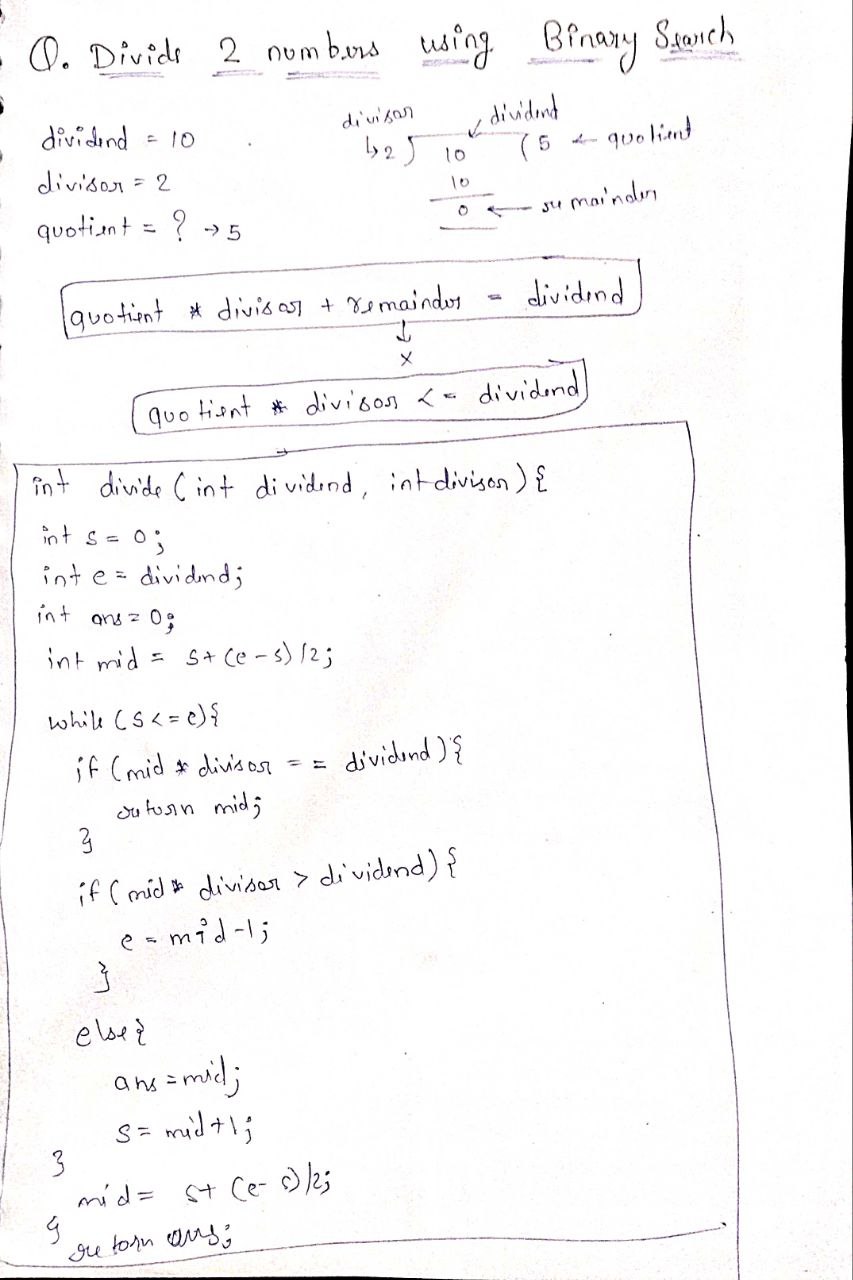 Q. Divide 2 numbers using Binary Search
dividend = 10
divisor = 2
quotient = ? → 5
divisor dividend
↳ 2 ) 10 ( 5 ← quotient
10
0 ← remainder
quotient * divisor + remainder = dividend
↓
x
quotient * divisor <= dividend
int divide (int dividend, int divisor) {
int s = 0;
int e = dividend;
int ans = 0;
int mid = s + (e - s) / 2;
while (s <= e) {
if (mid * divisor == dividend) {
return mid;
}
if (mid * divisor > dividend) {
e = mid - 1;
}
else {
ans = mid;
s = mid + 1;
}
mid = s + (e - s) / 2;
}
return ans;